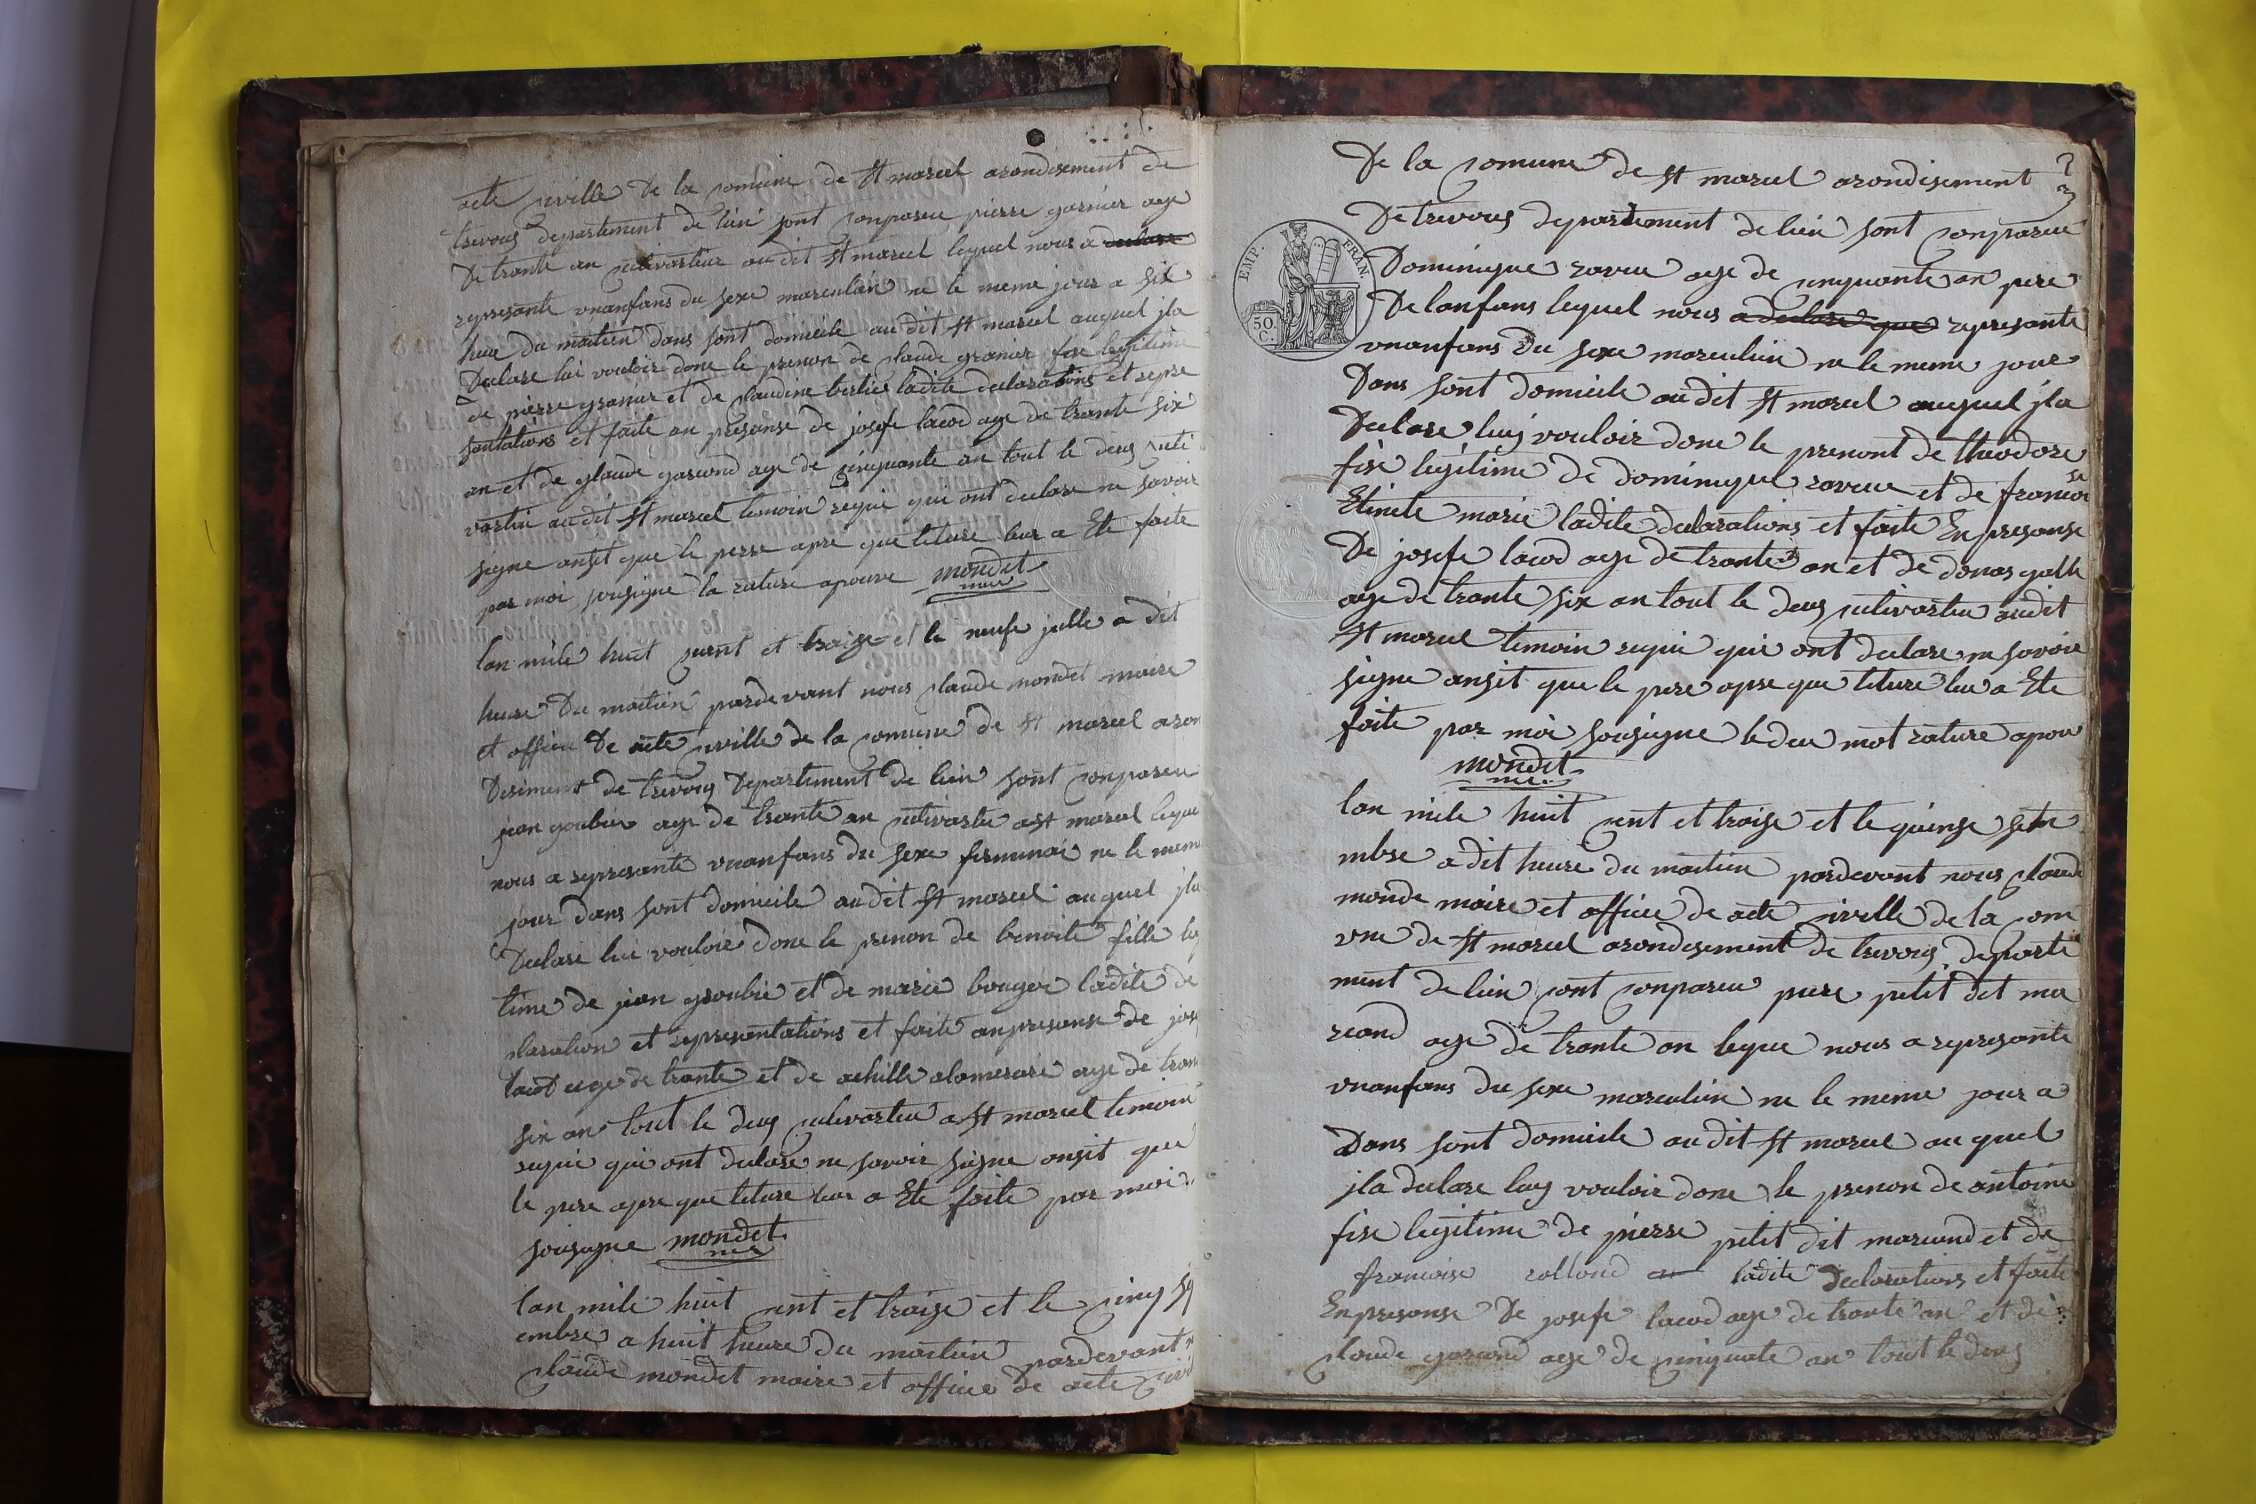 acte civille De la comune de st marcel arondisement de
trevous departement de lain sont conpareu pierre garnier age
De trante an cultivasteur au dit st marcel lequel nous a declare
represante vnanfans du sexe masculain ne le meme jour a six
heure du maitien dans sont domicile au dit st marcel auquel jla
Declare lui vouloir done le prenon de claude granier fise legitime
de pierre granier et de claudine bertier ladite declarations et repre
sentations et faite an presanse de josefe lacod age de trante six
an et de glaude gascond age de cinquante an tout le deus culti
vasteu au dit st marcel temoin requi qui ont declare ne savoir
signe ansit que le perre apre que leture leur a Ete faite
par moi sousigne la rature apouve mondet
mere
lan mile huit cent et traize et le neufe julle a dit
heure Du maitien pardevant nous claude mondet maire
et officie De acte civille de la comune de st marcel aron
Desiment de trevous Departement de lain sont conpareu
jean goubier age de trante an cultivasteu a st marcel leque
nous a represante vnanfans du sexe feminai ne le mem
jour dans sont domicile au dit st marcel auquel jla
Declare lui vouloir done le prenon de benoite fille leg
time de jean groubie et de marie bouger ladite de
claration et representations et faite anpresanse de jos
lacod age de trante et de achille alomerare age de tran
six an tout le deus cultivasteu a st marcel temoin
requi qui ont declare ne savoir signe ansit que
le pere apre que leture leur a Ete faite par moi
sousigne mondet
mere
lan mile huit cent et traize et le cinq
embre a huit heure du maitien pardevant n
claude mondet maire et officie de acte civi
De la comune de st marcel arondisement
De trevous departement de lain sont conpareu
Dominique raveu age de cinquante an pere
De lanfans lequel nous a declare que represante
vnanfans Du sexe masculin ne le meme jour
Dans sont domicile au dit st marcel auquel jla
Declare luy vouloir done le prenont de theodore
fise legitime de dominique raveu et de francoi
se
Etinete marie ladite declarations et faite En presanse
De josefe lacod age de trante an et de donas galle
age de trante six an tout le deus cultivasteu audit
st marcel temoin requi qui ont declare ne savoir
signe ansit que le pere apre que leture leur a Ete
faite par moi sousigne le deu mot rature apou
mondet
mere
lan mile huit cent et traize et le quinze septe
mbre a dit heure du maitien pardevant nous claude
monde maire et officie de acte civelle de la com
vne de st marcel arondisement de trevous departe
ment de lain sont conpareu piere petit dit ma
rcand age de trante an leque nous a represante
vnanfans du sexe masculin ne le meme jour a
Dans sont domicile au dit st marcel au quel
jla declare luy vouloir done le prenon de antoine
fise legitime de pierre petit dit marcand et de
francoise rolland ladite declarations et faite
En presanse De josefe lacod age de trante an et de
claude gascond age de cinquate an tout le deus
EMP. FRAN.
50.
C.